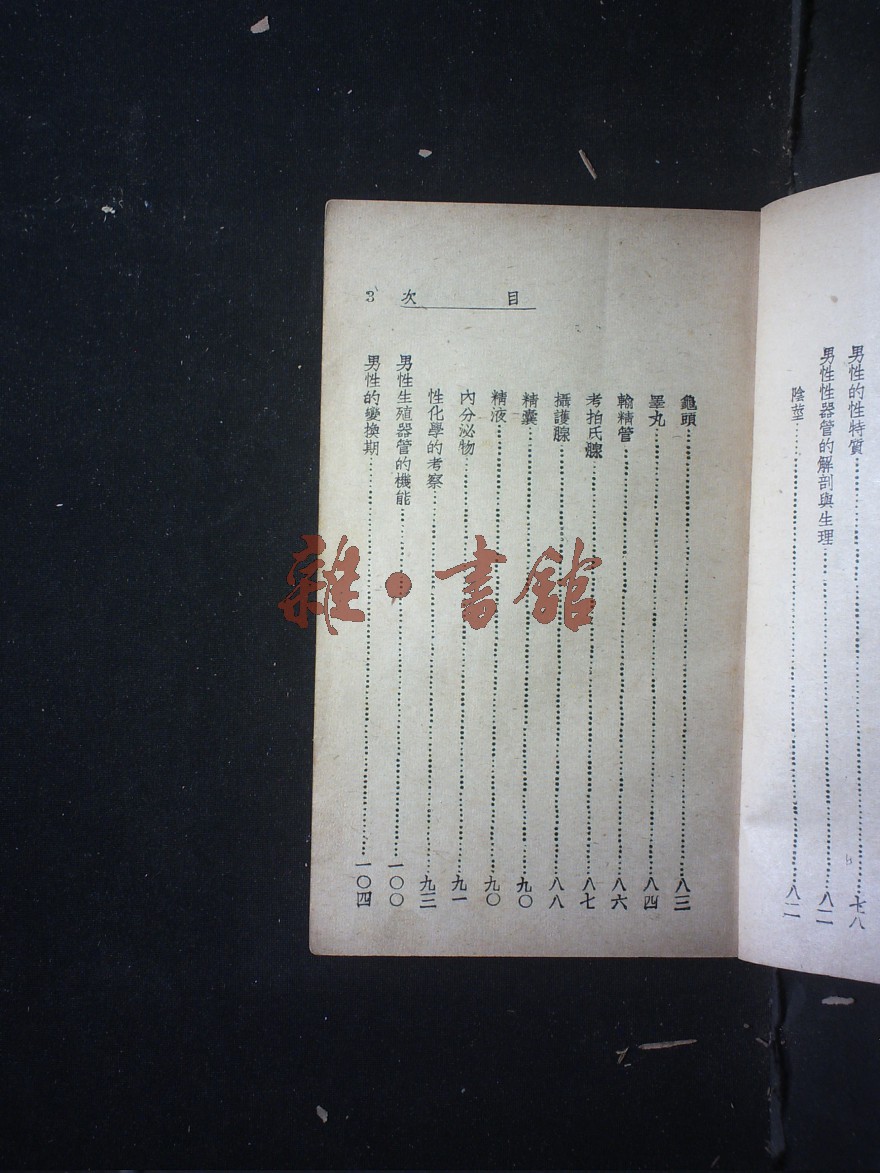 男性的性特質……七八
男性性器管的解剖與生理……八二
陰莖……八二
3 次 目
龜頭……八三
睪丸……八四
輸精管……八六
考拍氏腺……八七
攝護腺……八八
精囊……九〇
精液……九〇
內分泌物……九一
性化學的考察……九三
男性生殖器管的機能……一〇〇
男性的變換期……一〇四
雜·書館